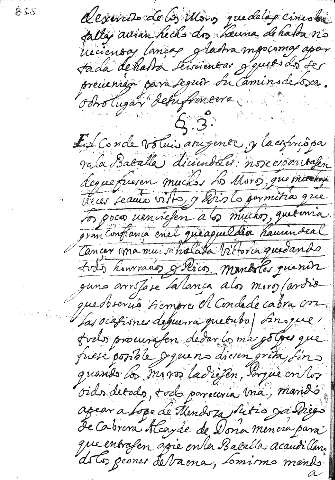 el exercito de los Moros que de las cinco ba
tallas avian hecho dos: la una de hasta no
vecientas lanzas y la otra mas comun apar
tada de hasta seiscientas y questas se
prevenian para seguir su camino de Loxa
o otro lugar de su frontera
§. 3º
El Conde volvio a su gente, y la esforço pa
ra la Batalla diciendoles: no se espantasen
de que fuesen muchos los Moros, que muchas
veces se avia visto, y Dios lo permitia que
los pocos venciesen a los muchos, que tenia
gran confianza en el que aquel dia havian de al
cançar una mui señalada Vitoria quedando
todos honrrados y Ricos. Mandoles que nin
guno arrojase la lança a los moros (ardid
que observó siempre el Conde de Cabra en
las ocasiones de guerra que tubo) sin que
todos procurasen de dar los mas golpes que
fuese posible y que no diesen grita, sino
quando los Moros la diesen, Porque en los
oidos de todos, todo pareceria una, mandó
apear a Lope de Mendoza, su tio y a Diego
de Cabrera Alcayde de Doña mencia para
que entrasen a pie en la Batalla acaudillan
do los peones de Vaena, Lo mismo mandó
a